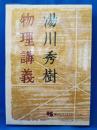 湯川秀樹
物理講義